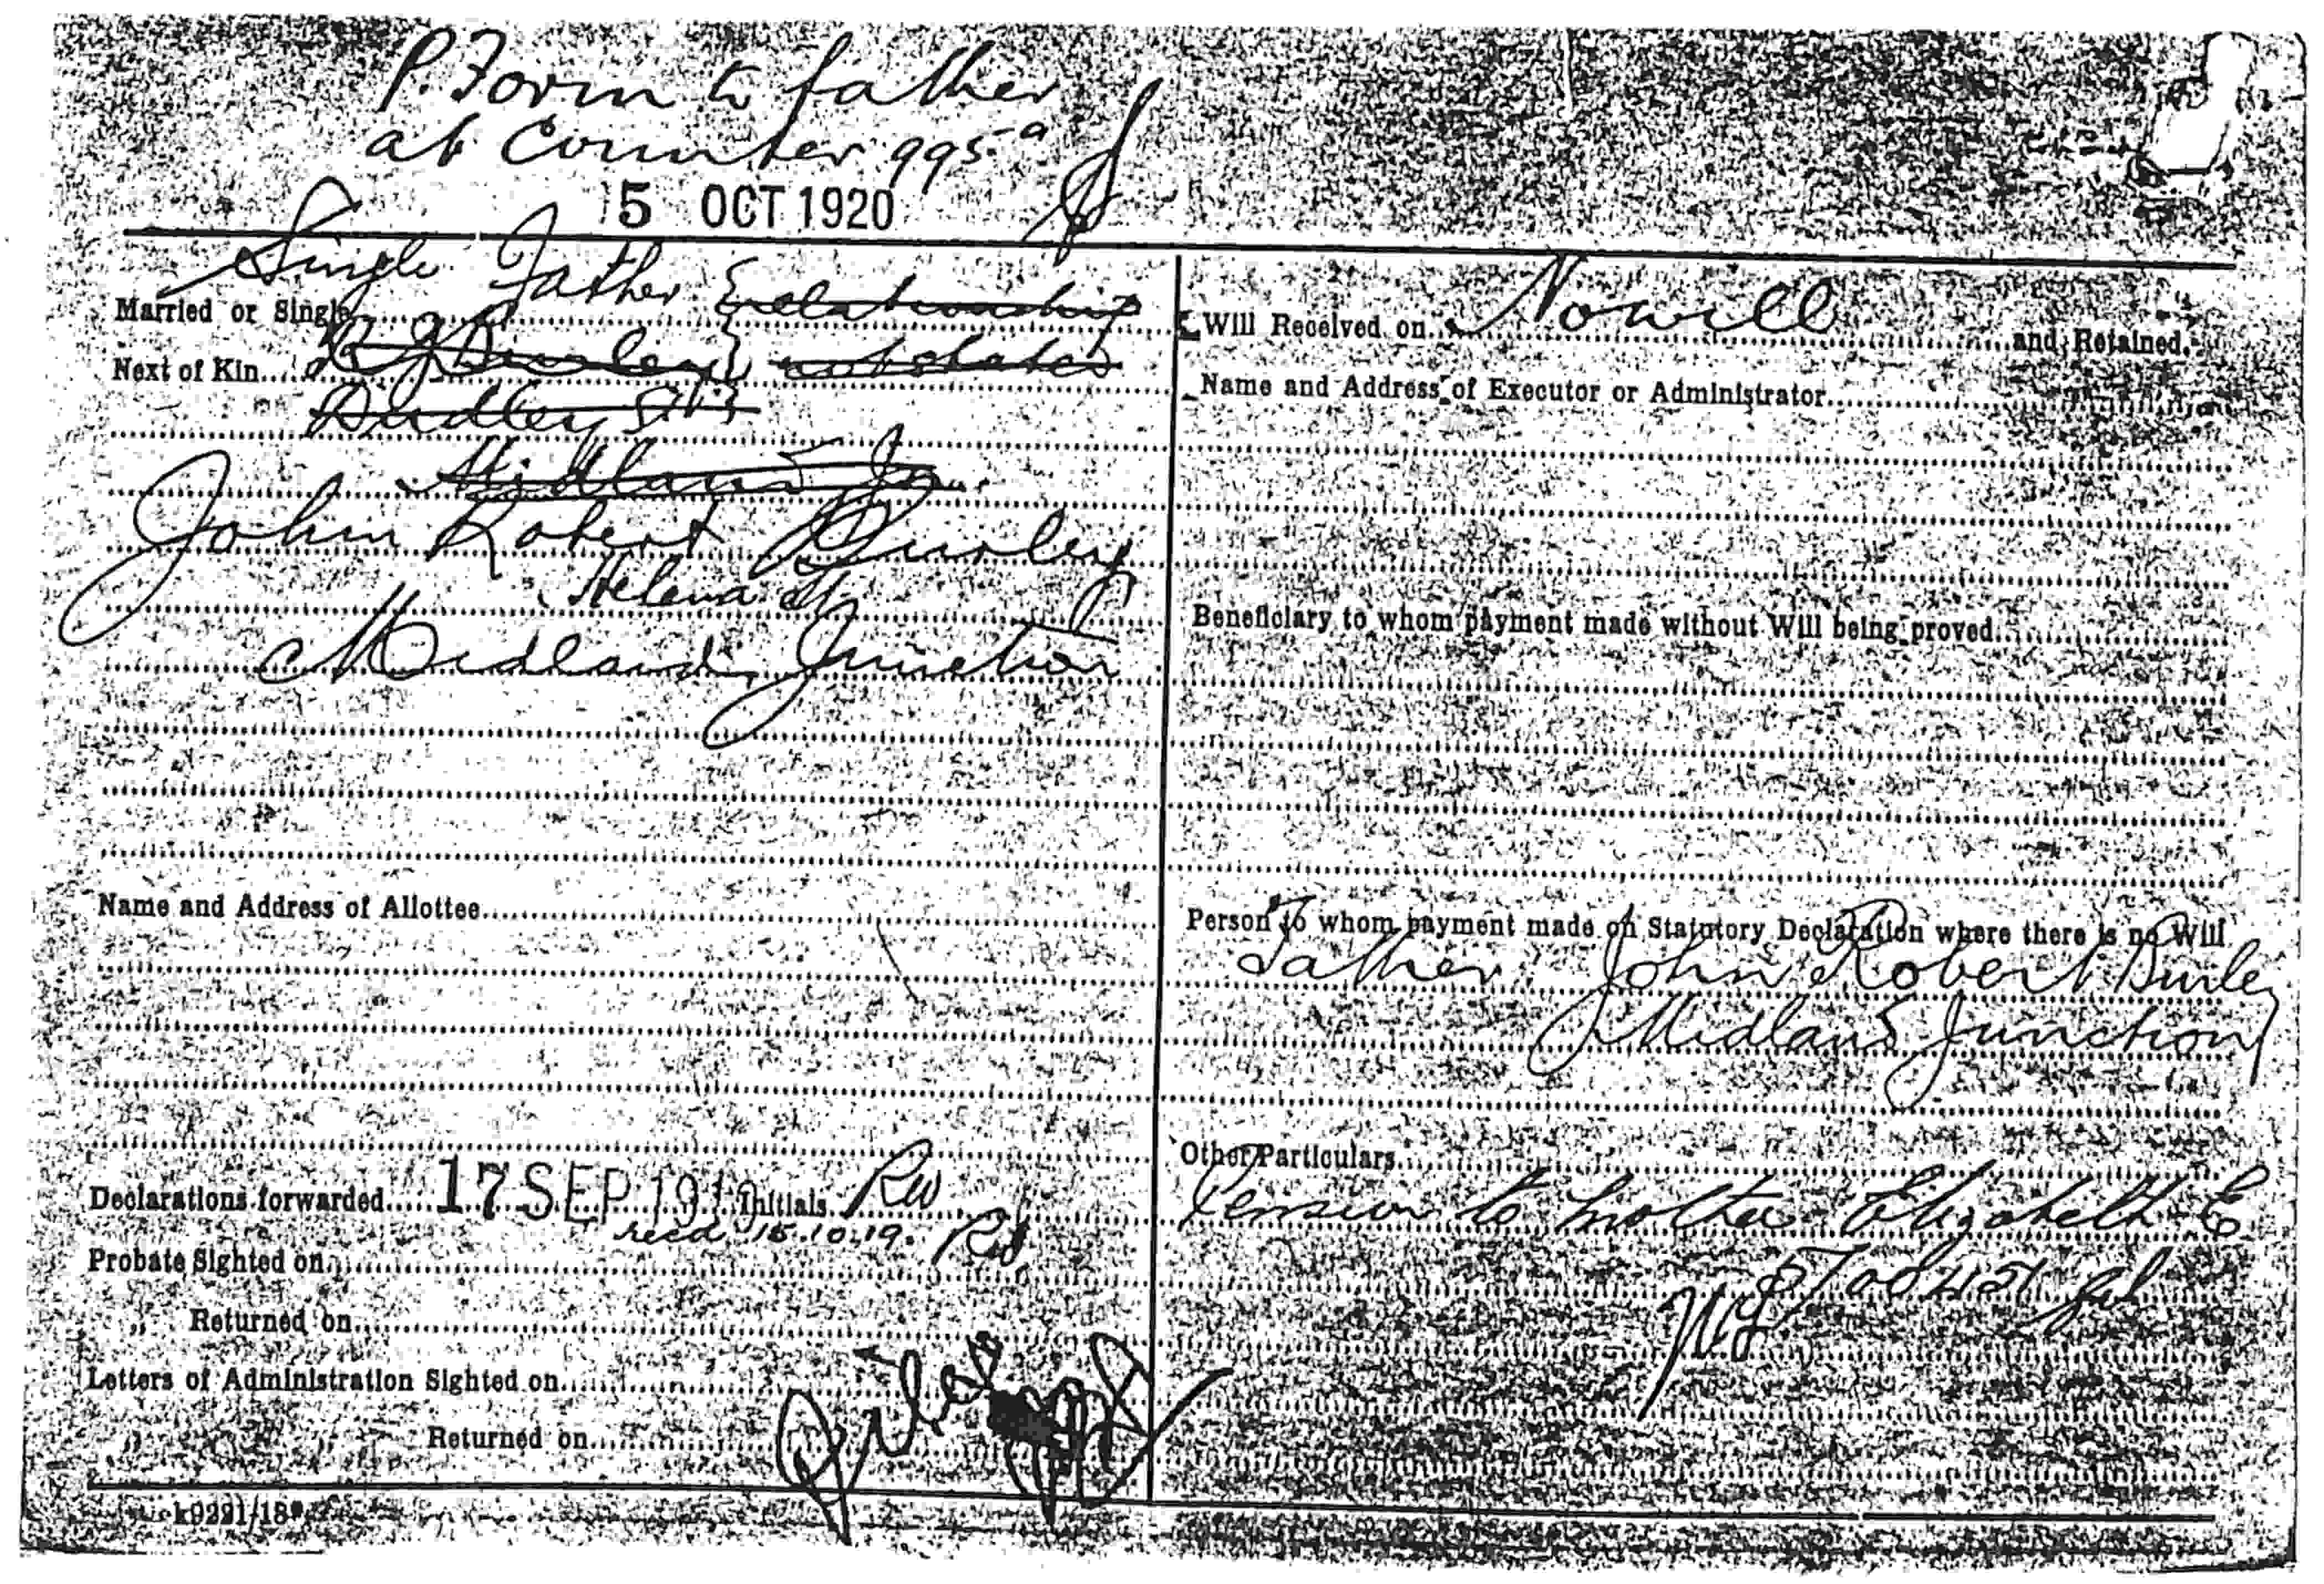 P. Form to father
at Counter 995a
5 OCT 1920
Single Father relationship
Married or Single
Next of Kin Burley not stated
Dudley St
Midland Jn.
John Robert Burley
Helena St
Midland Junction
Name and Address of Allottee
Declarations forwarded 17 SEP 1919 Initials RW
recd 15.10.19. RW
Probate Sighted on
" Returned on
Letters of Administration Sighted on
" " Returned on
k9221/18
Will Received on No will and Retained.
Name and Address of Executor or Administrator
Beneficiary to whom payment made without Will being proved
Person to whom payment made on Statutory Declaration where there is no Will
Father John Robert Burley
Midland Junction
Other Particulars
Pension to mother Elizabeth E